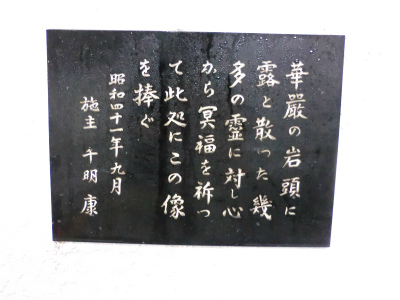 華嚴の岩頭に
露と散った幾
多の霊に対し心
から冥福を祈っ
て此処にこの像
を捧ぐ
昭和四十一年九月
施主 千明康